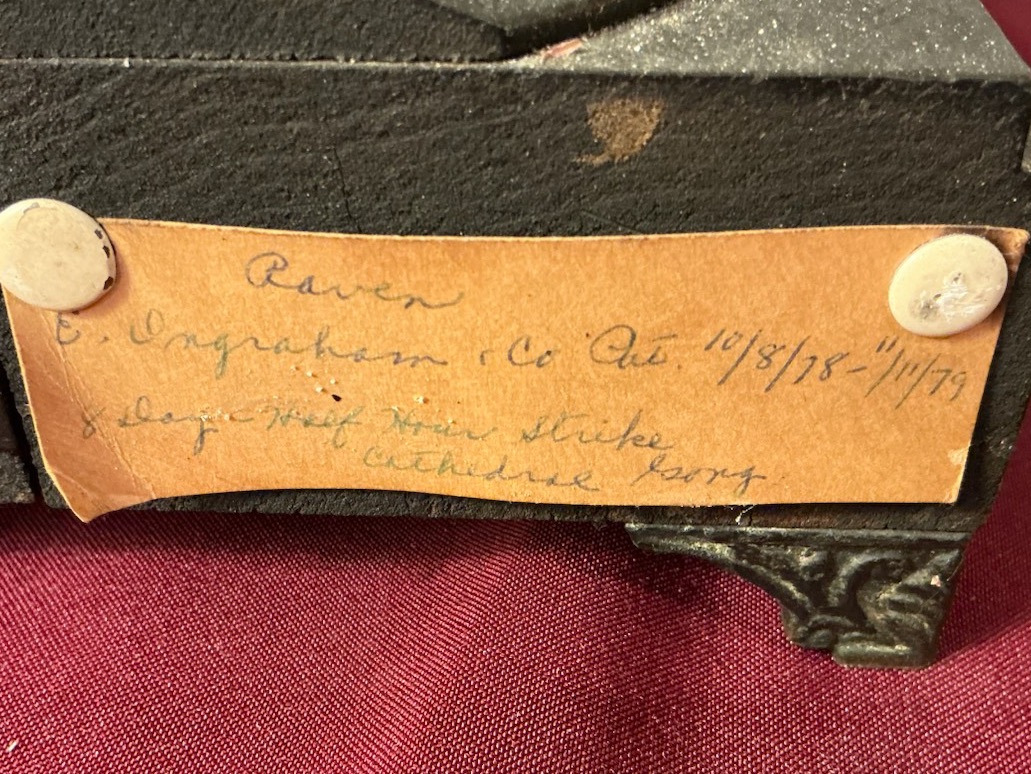 Raven
E. Ingraham & Co Pat. 10/8/78-11/11/79
8 Day - Half Hour Strike
Cathedral Gong